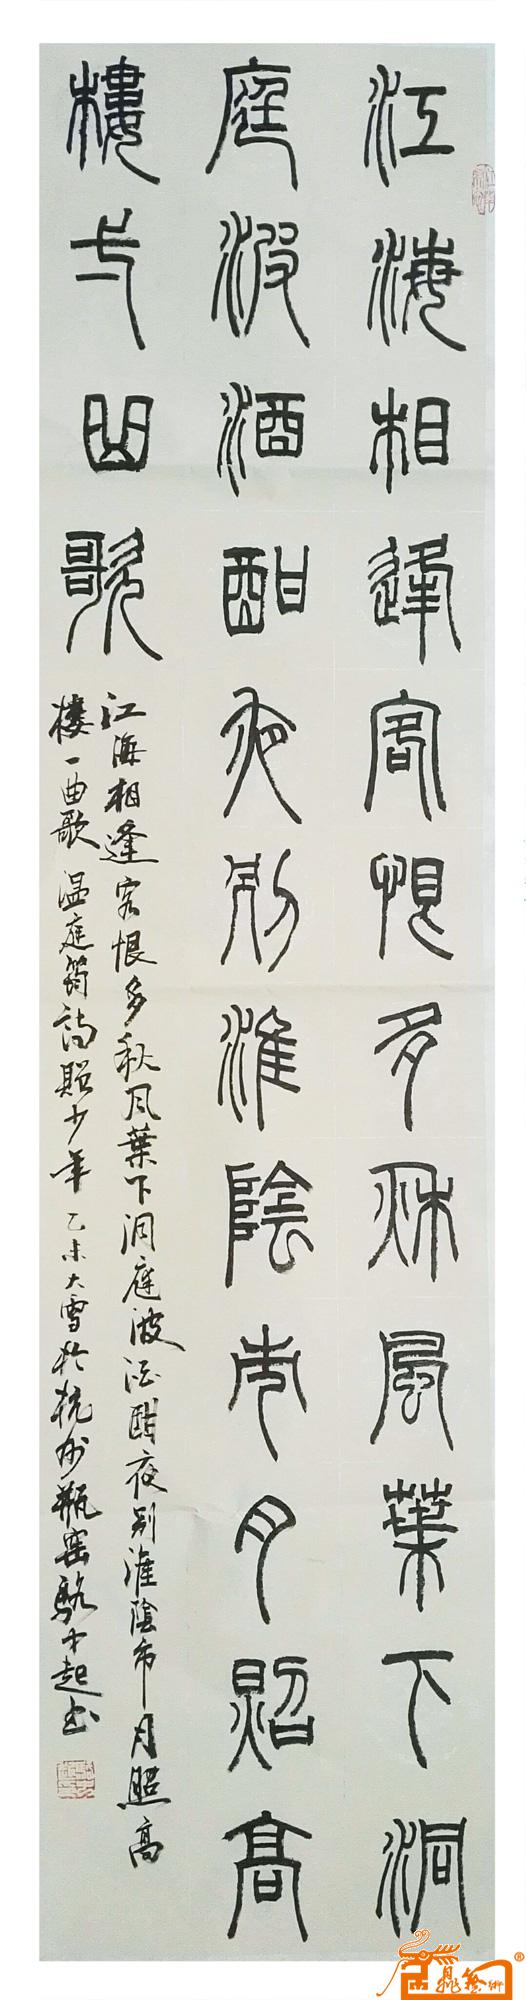 江海相逢客恨多秋風葉下洞
庭波酒酣夜別淮陰市月照高
樓弌曲歌
江海相逢客恨多秋风葉下洞庭波酒酣夜别淮陰市月照高
樓一曲歌 温庭筠詩贈少年 乙未大雪於杭州瓶窑駱中起书